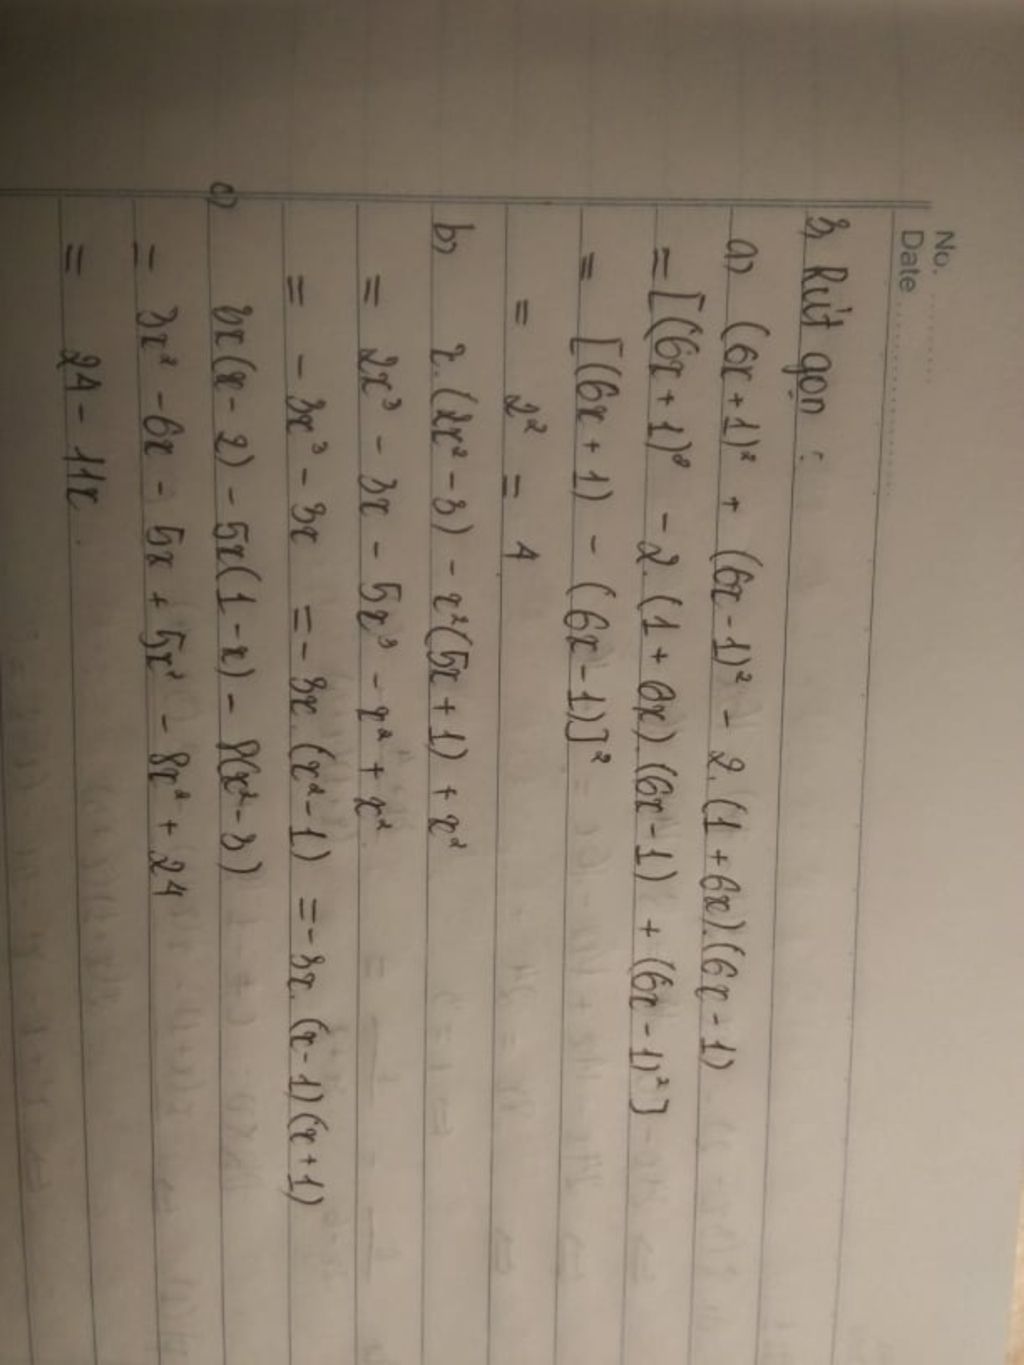 No. ............
Date ............
3, Rút gọn :
a) (6x+1)² + (6x-1)² - 2.(1+6x).(6x-1)
= [(6x+1)² - 2.(1+6x).(6x-1) + (6x-1)²]
= [(6x+1) - (6x-1)]²
= 2² = 4
b) x.(2x²-3) - x²(5x+1) + x²
= 2x³ - 3x - 5x³ - x² + x²
= - 3x³ - 3x = - 3x.(x²-1) = - 3x.(x-1)(x+1)
c) 3x(x-2) - 5x(1-x) - 8(x²-3)
= 3x² - 6x - 5x + 5x² - 8x² + 24
= 24 - 11x.